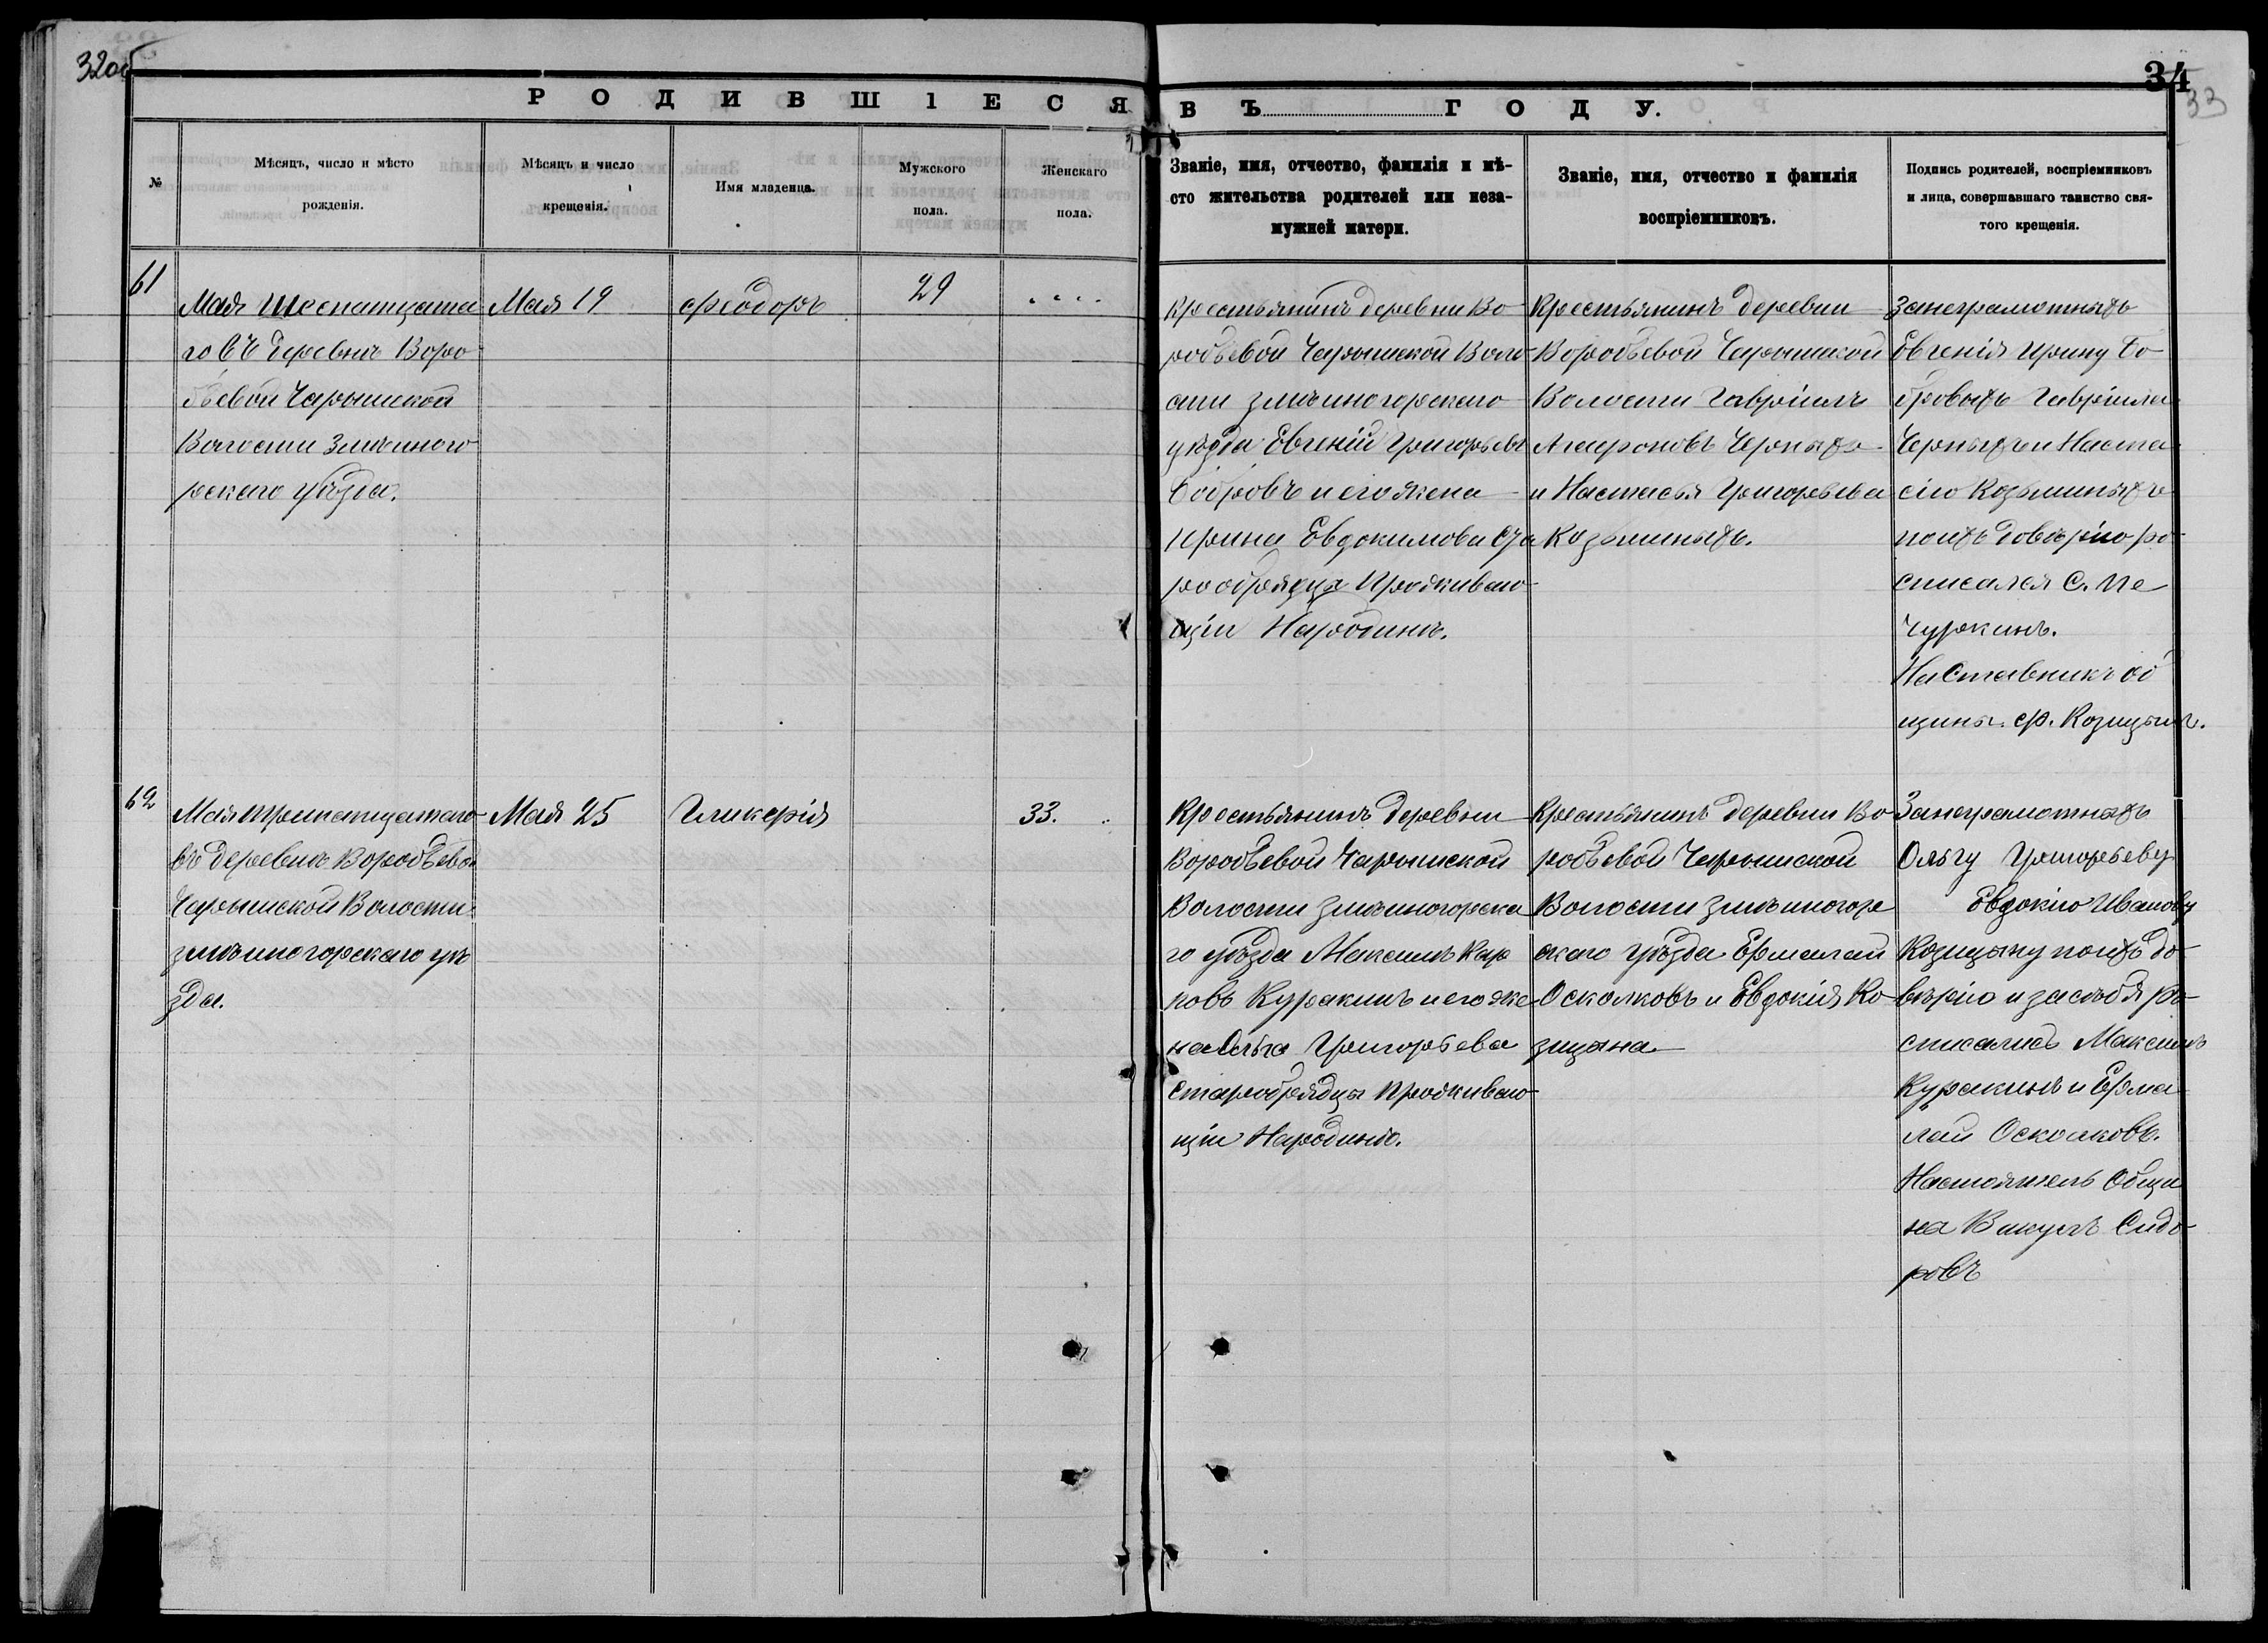 32об
34
33
РОДИВШІЕСЯ ВЪ ГОДУ.
№
Мѣсяцъ, число и мѣсто
рожденія.
Мѣсяцъ и число
крещенія.
Имя младенца.
Мужского
пола.
Женскаго
пола.
Званіе, имя, отчество, фамилія и мѣ-
сто жительства родителей или неза-
мужней матери.
Званіе, имя, отчество и фамилія
воспріемниковъ.
Подпись родителей, воспріемниковъ
и лица, совершавшаго таинство свя-
того крещенія.
61
Мая шеснатцата
го въ деревнѣ Воро
бьевой Чарышской
Волости Змѣиного
рскаго уѣзда.
Мая 19
Феодоръ
29
....
Крестьянинъ деревни Во
робьевой Чарышской Воло
сти Змѣиногорскаго
уѣзда Евгеній Григорьевъ
Бобровъ и его жена
Ирина Евдокимова Ста
рообрядцы Проживаю
щіи Народинѣ.
Крестьянинъ деревни
Воробьевой Чарышской
Волости Гавріилъ
Мироновъ Черныхъ
и Настасья Григорьева
Козьминыхъ.
Занеграмотныхъ
Евгенія Ирину Бо
бровыхъ Гавріила
Черныхъ и Наста
сію Козьминыхъ
поихъ довѣрію ро
списался С. Пе
чуркинъ.
Наставникъ об
щины Ф. Козицынъ.
62
Мая тринатцатаго
въ деревнѣ Воробьевой
Чарышской Волости
змѣиногорскаго уѣ
зда.
Мая 25
Гликерія
33.
Крестьянинъ деревни
Воробьевой Чарышской
Волости Змѣиногорска
го уѣзда Максимъ Кар
повъ Куракинъ и его же
на Ольга Григорьева
Старообрядцы Проживаю
щіи Народинѣ.
Крестьянинъ деревни Во
робьевой Чарышской
Волости Змѣиногор
скаго уѣзда Ермалай
Осколковъ и Евдокія Ко
зицына
Занеграмотныхъ
Ольгу Григорьеву
Евдокію Иванову
Козицыну поихъ до
вѣрію и засѣбя ро
списались Максимъ
Куракинъ и Ерма
лай Осколковъ.
Настоятель Общи
на Викулъ Сидо
ровъ